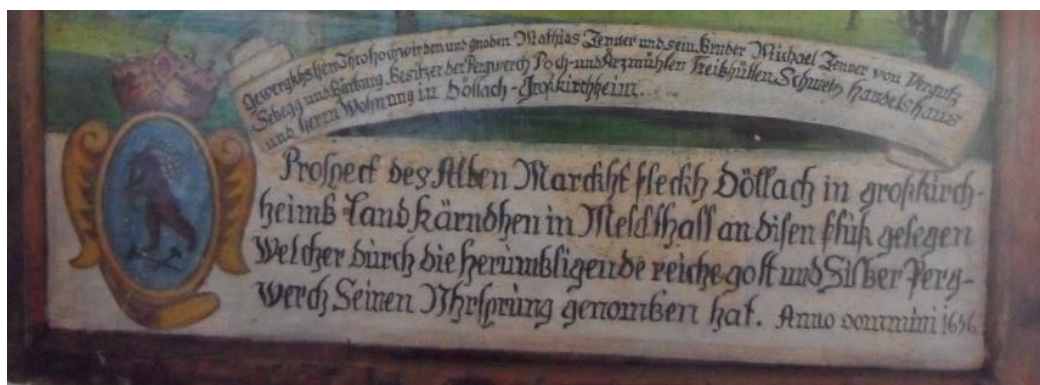 Gewerckhsherr Ihro hochwirden und gnaden Mathias Zenner und sein Bruder Michael Zenner von
und Bärburg. Besitzer der Pergwerch Poch-und Ärzmühlen Treibhütten Schmelz handelshaus
und herrn Wohnung in Döllach-Großkirchheim.
Prospect des Alten Marckht fleckh Döllach in großkirch-
heimb Land Kärndhen in Meldthall an disen fluß gelegen
Welcher durch die herumbligende reiche golt und Silber Perg-
werch Seinen Uhrsprung genomben hat. Anno dommini 1656.